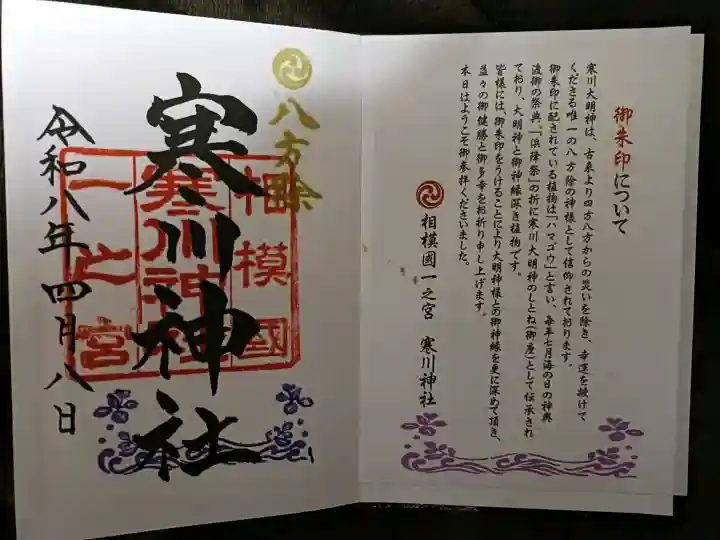 御朱印について
寒川大明神は、古来より四方八方からの災いを除き、幸運を授けて
くださる唯一の八方除の神様として信仰されております。
御朱印に配されている植物は「ハマゴウ」と言い、毎年七月海の日の神輿
渡御の祭典、「浜降祭」の折に寒川大明神のしとね(御座)として伝承され
ており、大明神と御神縁深き植物です。
皆様には、御朱印をうけることにより大明神様との御神縁を更に深めて頂き、
益々の御健勝と御多幸をお祈り申し上げます。
本日はようこそ御参拝くださいました。
相模國一之宮 寒川神社
八方除
寒川神社
相模國
寒川神社
一之宮
令和八年四月八日